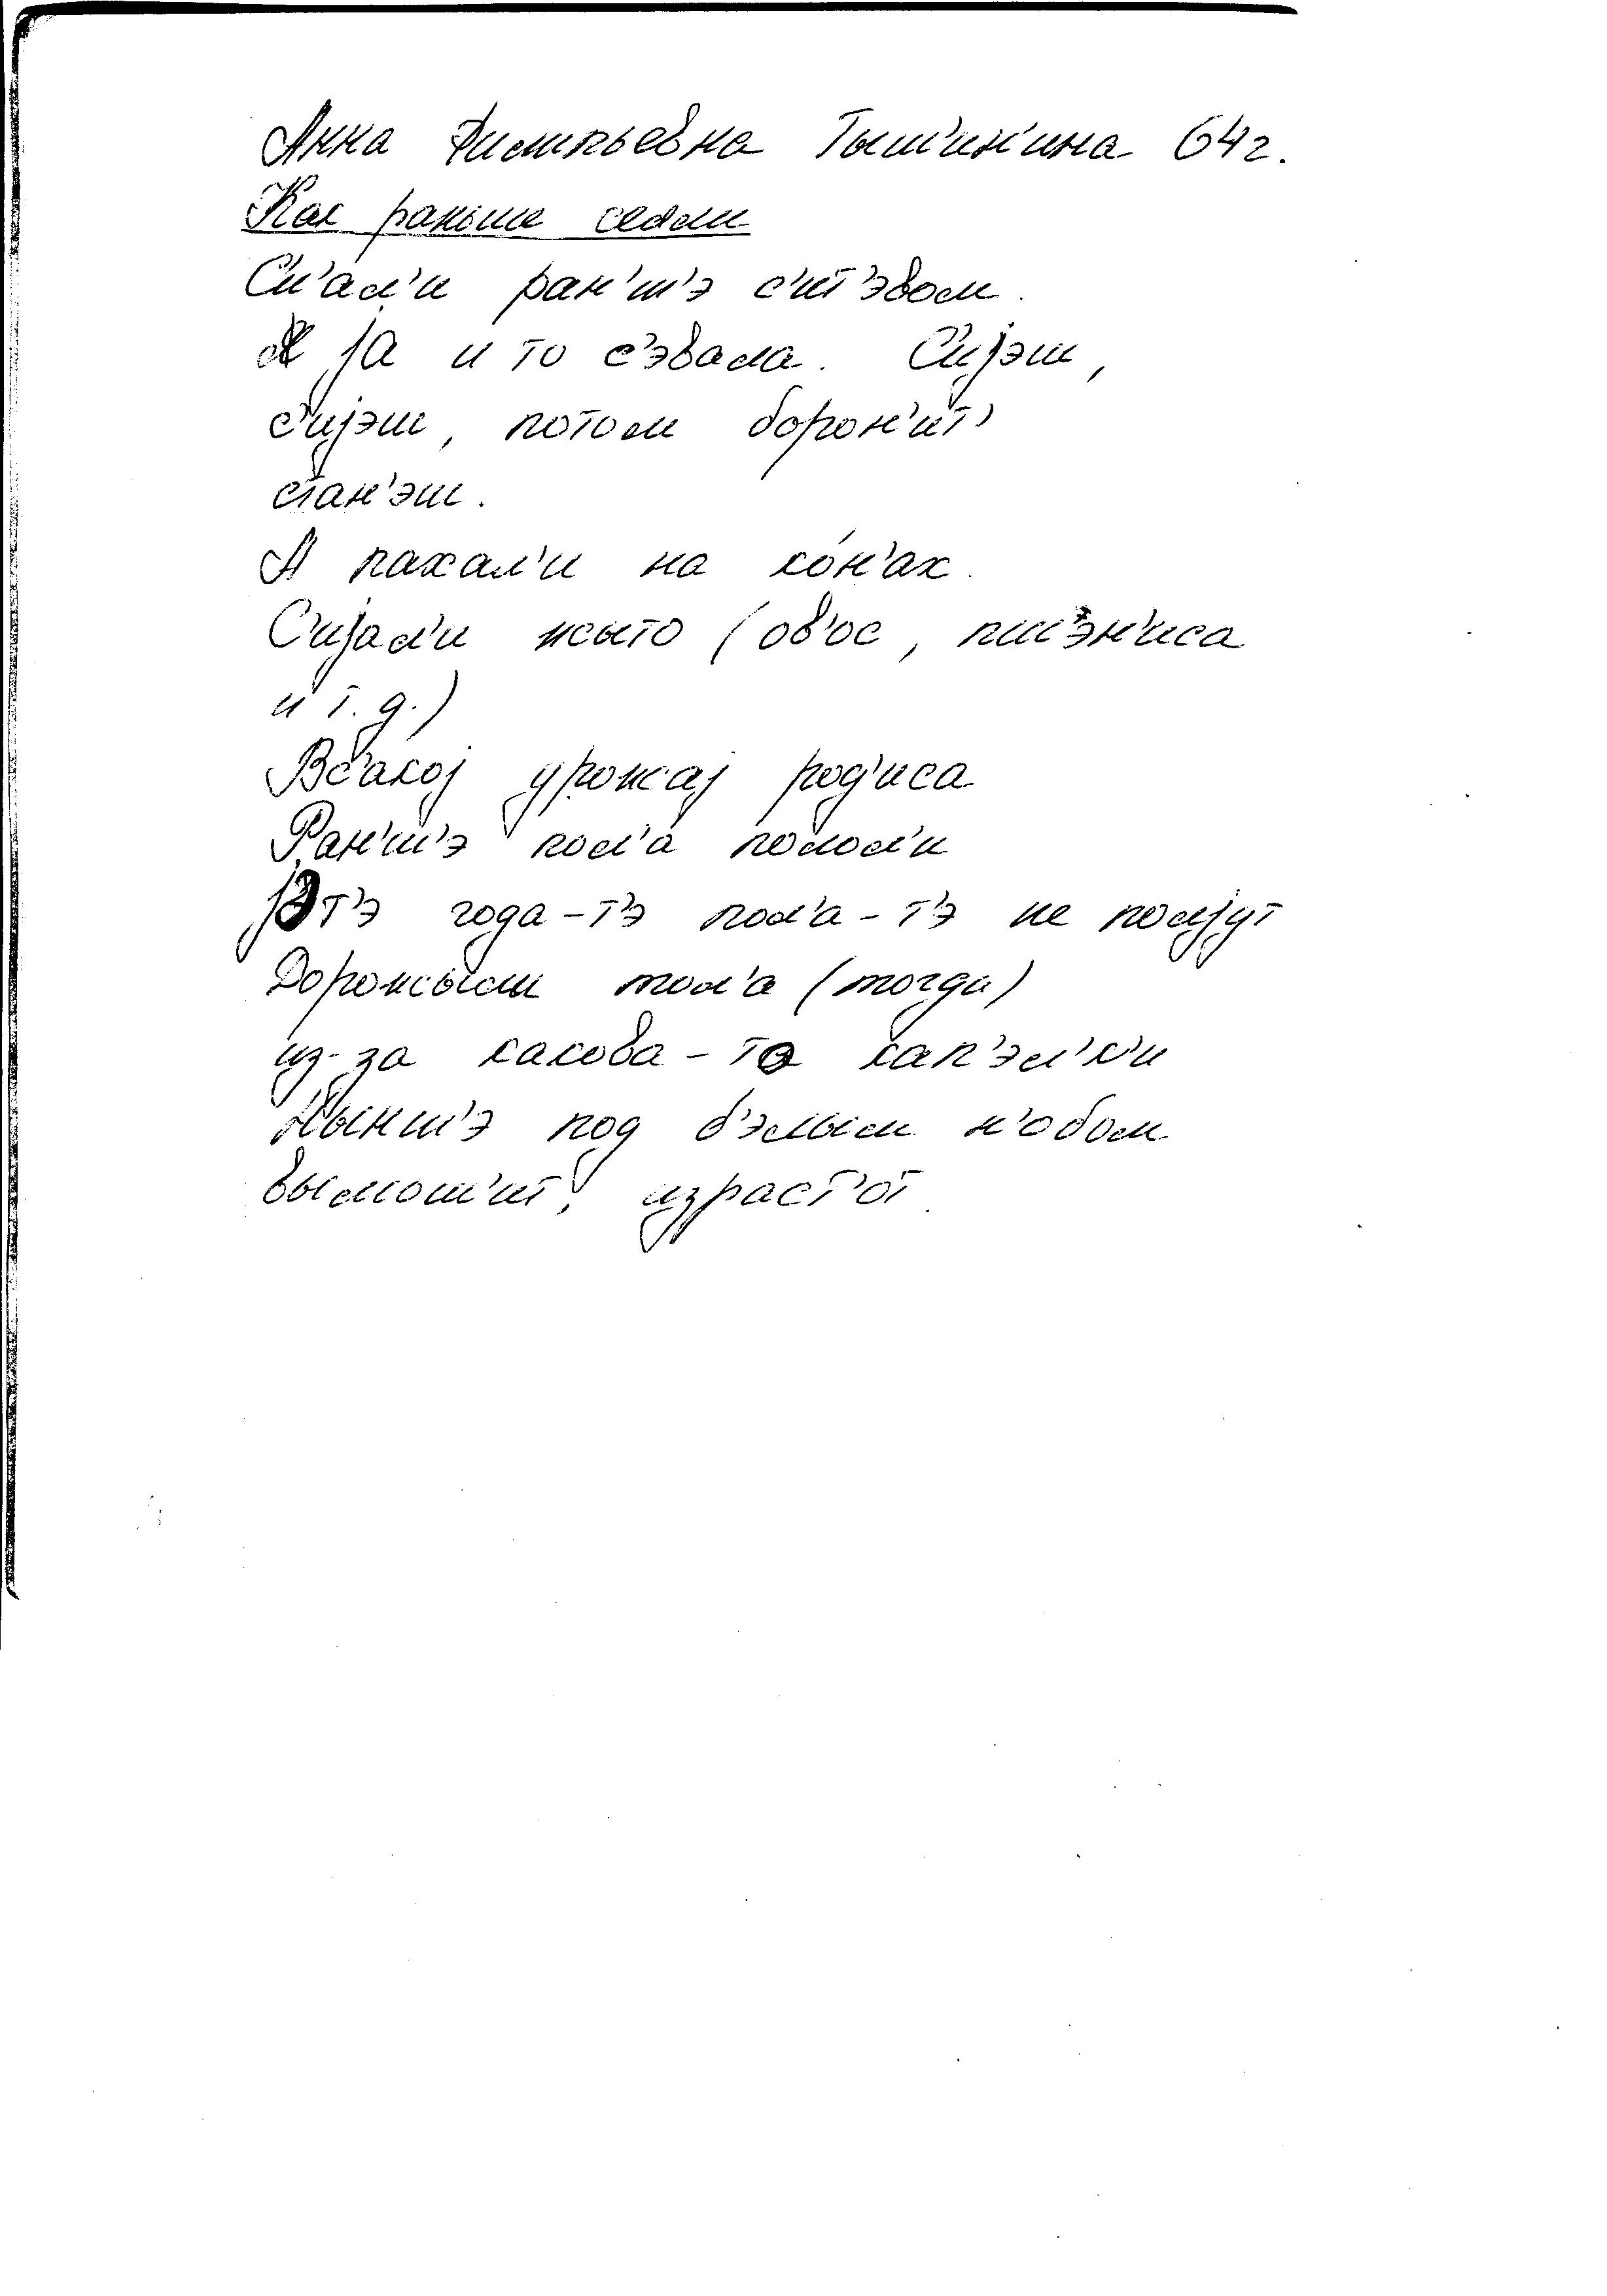 Анна Дмитрьевна Тыш'ин'ина 64 г.
Как раньше сеяли
Си'ал'и ран'ш'э с'ит'эвом.
А jа и то с'эвала. С'иjэш,
с'иjэш, потом борон'ит'
стан'эш.
А пахал'и на ко́н'ах.
С'иjал'и жыто (ов'ос, пш'эн'иса
и т.д.)
Вс'акоj урожаj род'иса
Ран'ш'э пол'а полол'и
jэт'э года-т'э пол'а-т'э не полjут
Дорожыли тол'а (тогда)
из-за какова-то кап'эл'к'и
Нынш'э под б'элым н'обом
вымош'ит, израст'от